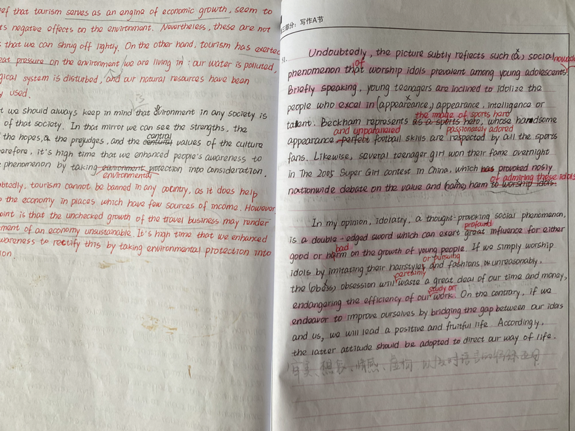 ef that tourism serves as an engine of economic growth, seem to
s negative effects on the environment. Nevertheless, these are not
that we can shrug off lightly. On the other hand, tourism has exerted
pressure on the environment we are living in: our water is polluted,
gical system is disturbed, and our housing resources have been
y used.
t we should always keep in mind that environment in any society is
of that society. In that mirror we can see the strengths, the
central
the hopes, the prejudices, and the central values of the culture
erefore, it's high time that we enhanced people's awareness to
phenomenon by taking environment protection into consideration.
environmental
btedly, tourism cannot be banned in any country, as it does help
the economy in places which have few sources of income. However
int is that the unchecked growth of the travel business may render
ment of an economy unsustainable. It's high time that we enhanced
wareness to rectify this by taking environmental protection into
ion
写作A节
Undoubtedly, the picture subtly reflects such (a) social
phenomenon that worship idols prevalent among young adolescents.
of
Briefly speaking, young teenagers are inclined to idolize the
people who excel in (appearance), appearance, intelligence or
the image of sports hero
talent. Beckham represents as a sports hero, whose handsome
and unparalleled passionately adored
appearance perfect football skills are respected by all the sports
fans. Likewise, several teenager girl won their fame overnight
in The 2015 Super Girl contest in China, which has provoked hotly
of admiring these idols
nationwide debate on the value and harm to worship idols.
In my opinion, idolatry, a thought-provoking social phenomenon,
profound
is a double-edged sword which can exert great influence for either
bad
good or harm on the growth of young people. If we simply worship
or pursuing
idols by imitating their hairstyles and fashions unreasonably,
certainly
the obsession will waste a great deal of our time and money,
study or
endangering the efficiency of our work. On the contrary, if we
endeavor to improve ourselves by bridging the gap between our idols
and us, we will lead a positive and fruitful life. Accordingly,
the latter attitude should be adopted to direct our way of life.